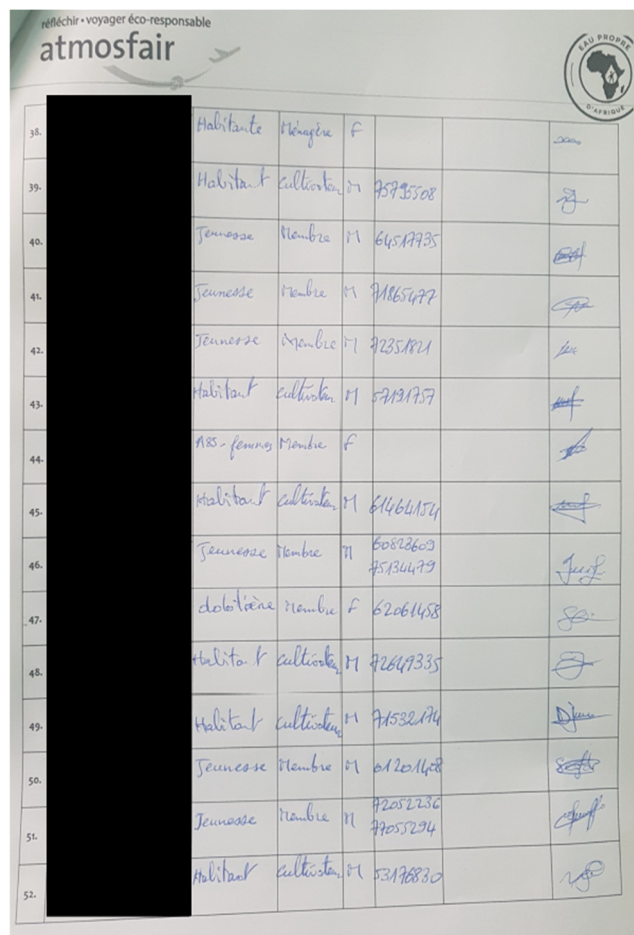 réfléchir • voyager éco-responsable
atmosfair
EAU PROPRE
D'AFRIQUE
38. Habitante Ménagère F
39. Habitant Cultivateur M 75795508
40. Jeunesse Membre M 64517735
41. Jeunesse Membre M 71865477
42. Jeunesse Membre M 72351821
43. Habitant Cultivateur M 57191757
44. femmes Membre F
45. Habitant Cultivateur M 61464154
46. Jeunesse Membre M 60823609
75134479
47. Membre F 62061458
48. Habitant Cultivateur M 72649335
49. Habitant Cultivateur M 71532174
50. Jeunesse Membre M 61201408
51. Jeunesse Membre M 72052236
77055294
52. Habitant Cultivateur M 53176830